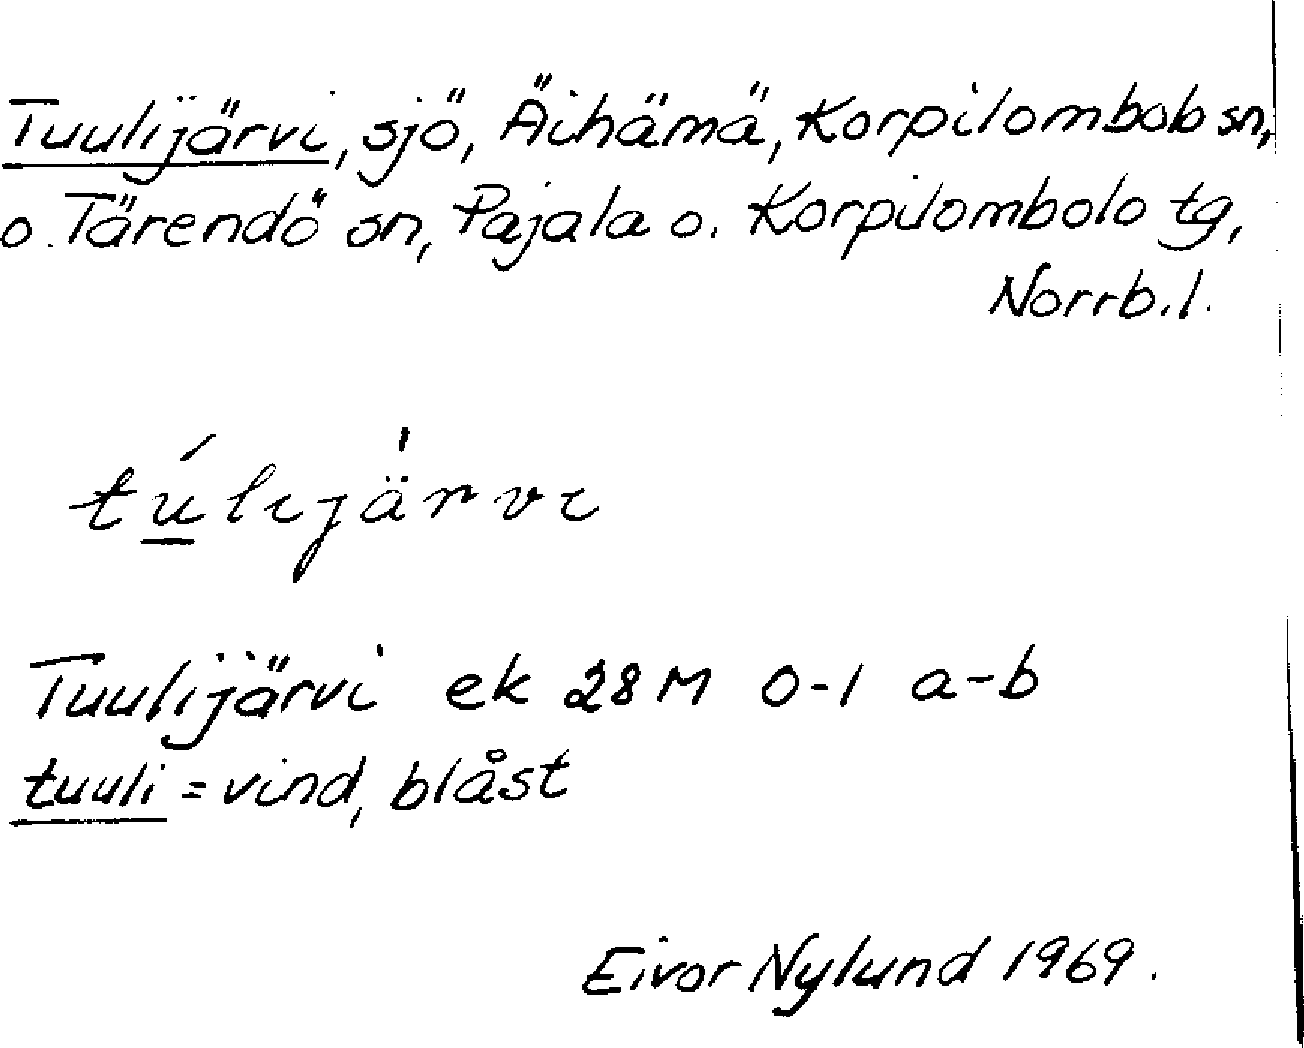 Tuulijärvi, sjö, Äihämä, Korpilombolo sn,
o. Tärendö sn, Pajala o. Korpilombolo tg,
Norrb. l.
tú̱lijä'rvi
Tuulijärvi ek 28 M 0-1 a-b
tuuli = vind, blåst
Eivor Nylund 1969.